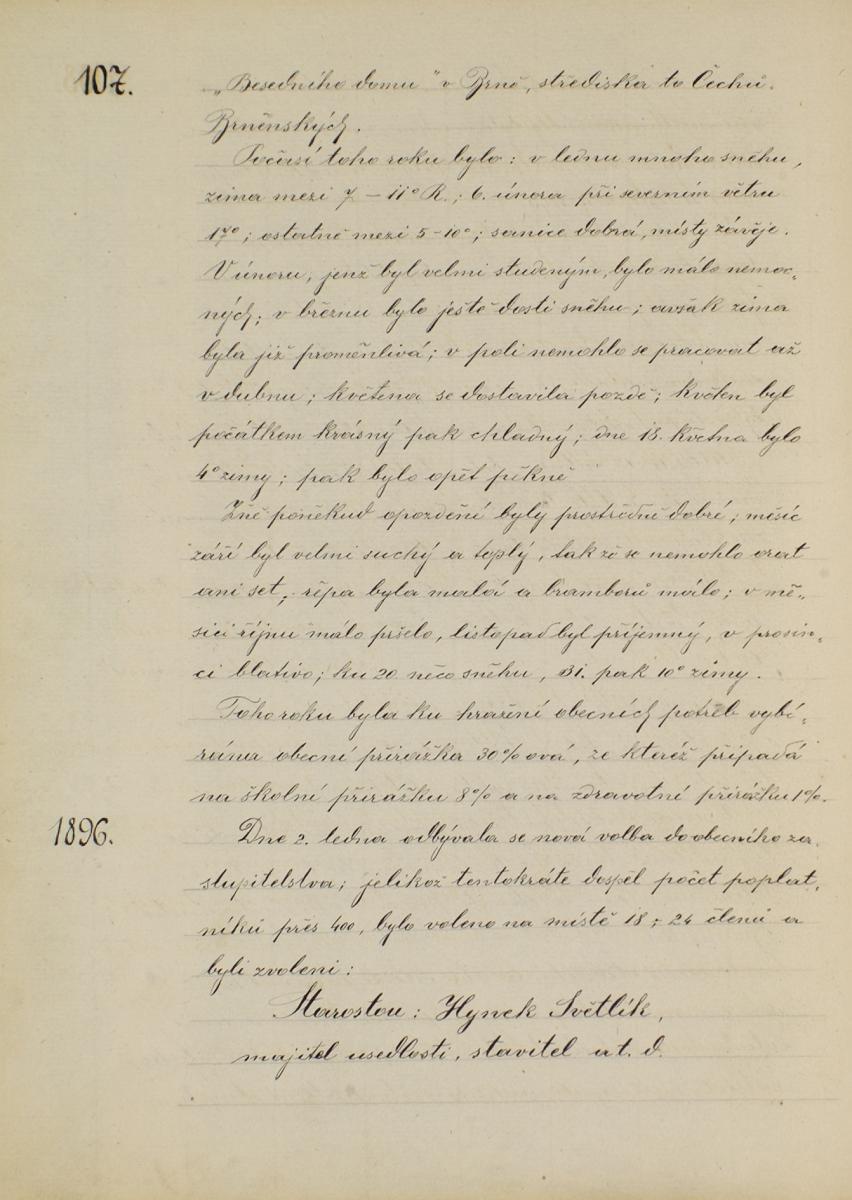 107.
„Besedního domu" v Brně, střediska to Čechů
Brněnských.
Počasí toho roku bylo: v lednu mnoho sněhu,
zima mezi 7–11° R.; 6. února při severním větru
17°; ostatně mezi 5–10°; sanice dobrá, místy závěje.
V únoru, jenž byl velmi studeným, bylo málo nemoc-
ných; v březnu bylo ještě dosti sněhu; avšak zima
byla již proměnlivá; v poli nemohlo se pracovat až
v dubnu; květena se dostavila pozdě; květen byl
počátkem krásný pak chladný; dne 18. května bylo
4° zimy; pak bylo opět pěkně
Žně poněkud opozdění byly prostředně dobré; měsíc
září byl velmi suchý a teplý, tak že se nemohlo orat
ani set; řepa byla malá a bramborů málo; v mě-
síci říjnu málo pršelo, listopad byl příjemný, v prosin-
ci blativo; ku 20 něco sněhu, 31. pak 10° zimy.
Toho roku byla ku hražení obecních potřeb vybí-
rána obecní přirážka 30% ová, ze kteréž připadá
na školní přirážku 8% a na zdravotní přirážku 1%.
1896.
Dne 2. ledna odbývala se nová volba do obecního za-
stupitelstva; jelikož tentokráte dospěl počet poplat-
níků přes 400, bylo voleno na místě 18, 24 členů a
byli zvoleni:
Starostou: Hynek Světlík,
majitel usedlosti, stavitel a t. d.